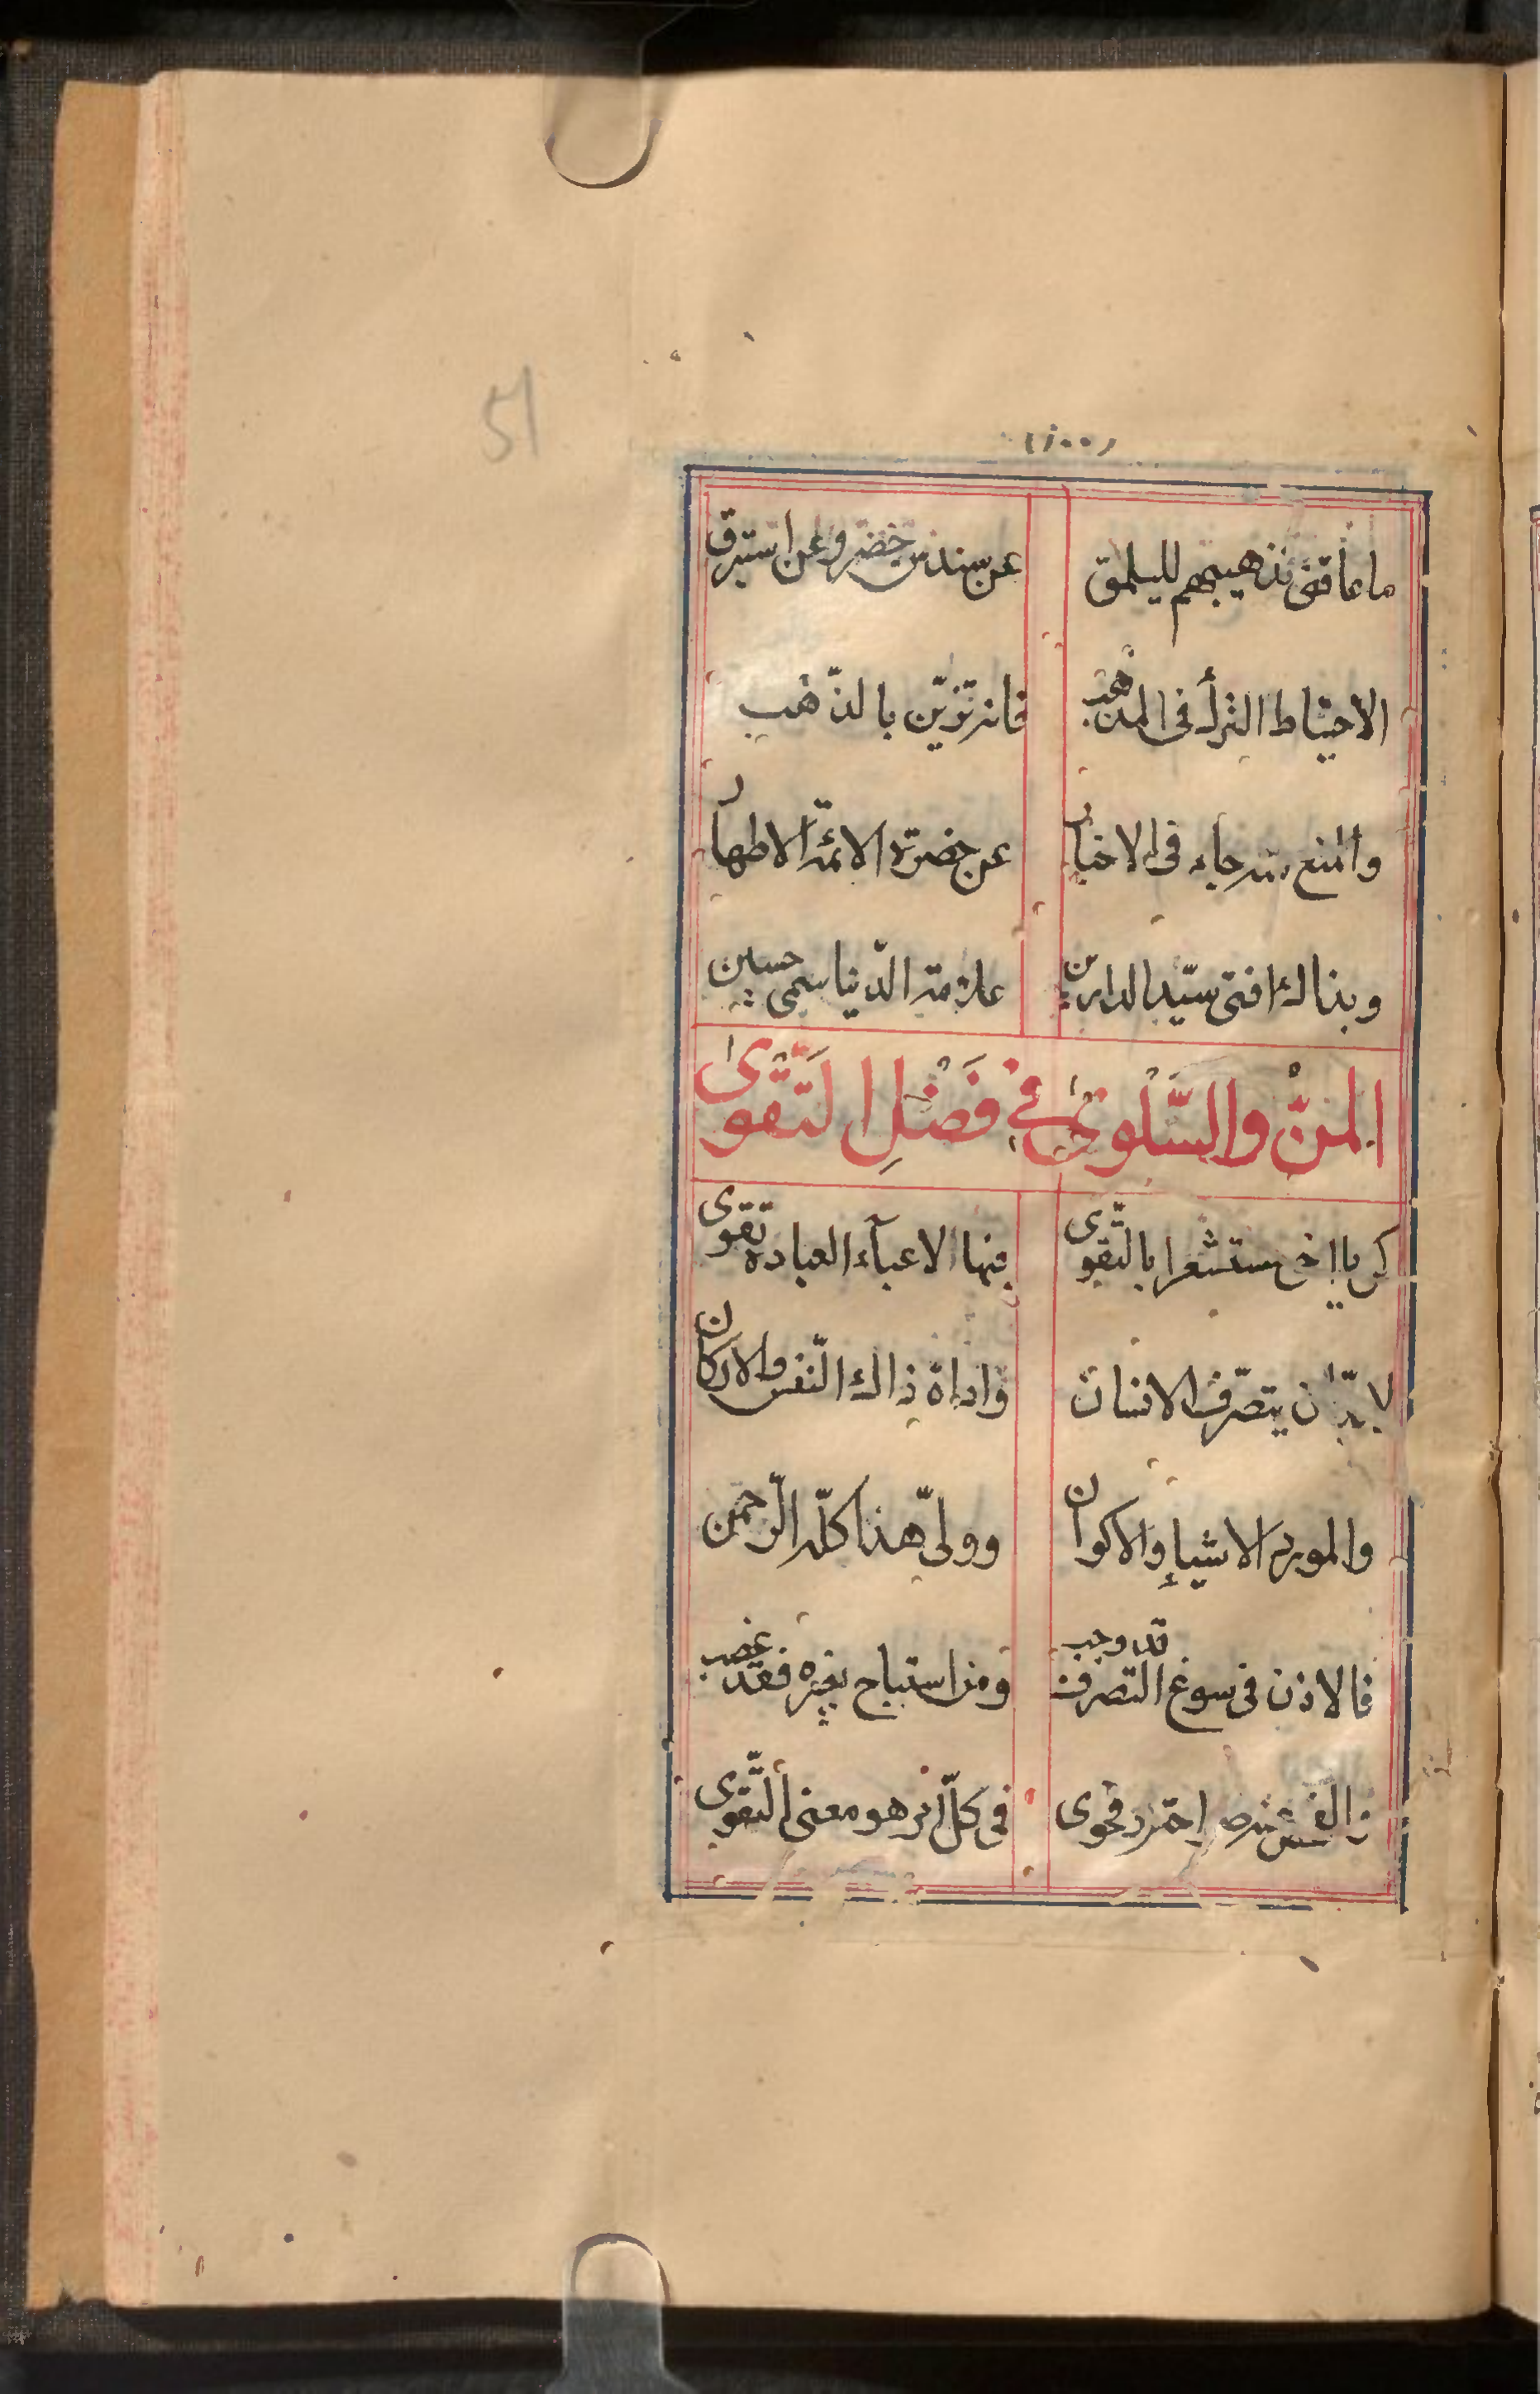 51
(١٠٠)
ما عاقنی تذهیبهم للیلمق عن سندس خضر وعن استبرق
الاحتیاط الترك فی المذهب فانه تزیّن بالذّهب
والمنع منه جاء فی الاخبار عن حضرة الائمّة الاطهار
وبذاك افتی سیّد الدارین علامة الدّنیا سمی حسین
المنّ والسَّلْویٰ فِی فَضْلِ التَّقْویٰ
كن یا اخی مستشعرا بالتّقوی منها لاعبآء العبادة تقوی
لابدّ ان یتصرّف الانسان واداة ذاك النّفس والاركان
والمورد الاشیاء والاكوان وولیّ هذا كلّه الرّحمن
فالاذن فی سوغ التصرف قد وجب ومن استباح بغیره فقد غصب
فی كلّ امر هو معنی التّقوی